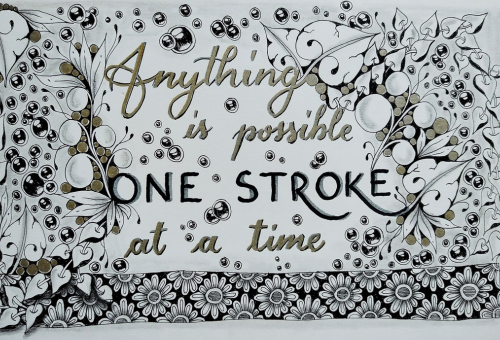 Anything
is possible
ONE STROKE
at a time